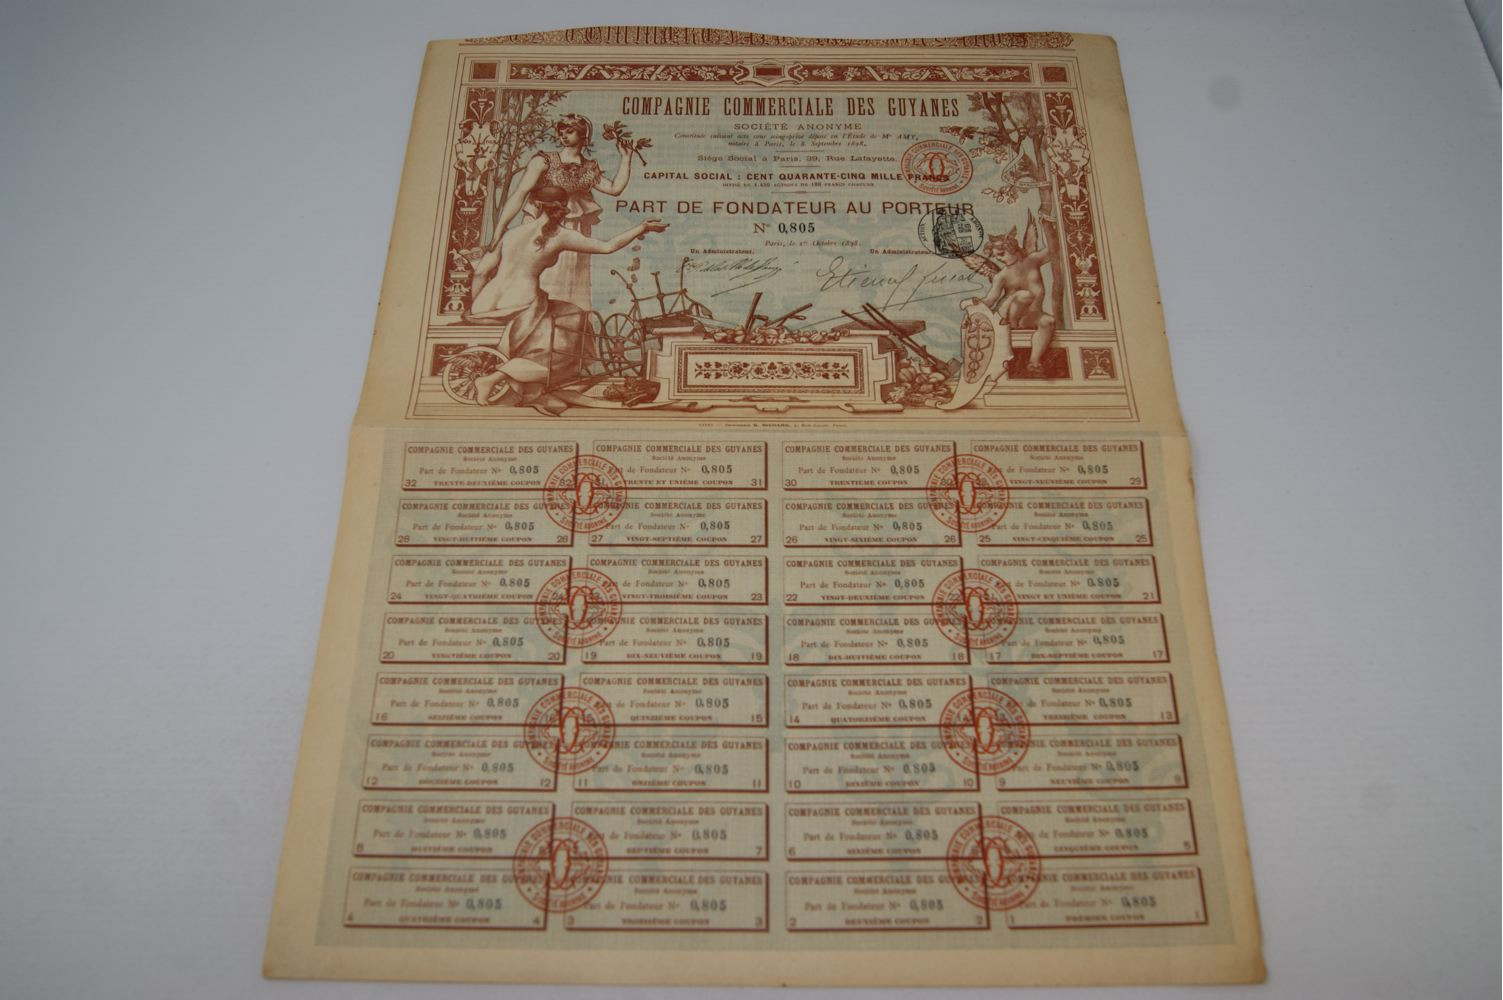 COMPAGNIE COMMERCIALE DES GUYANES
SOCIÉTÉ ANONYME
Constituée suivant acte sous seing-privé déposé en l'Étude de Mᵉ AMY,
notaire à Paris, le 8 Septembre 1898.
Siège Social à Paris, 39, Rue Lafayette.
CAPITAL SOCIAL : CENT QUARANTE-CINQ MILLE FRANCS
DIVISÉ EN 1450 ACTIONS DE 100 FRANCS CHACUNE
PART DE FONDATEUR AU PORTEUR
Nº 0,805
Paris, le 1er Octobre 1898.
Un Administrateur, Un Administrateur,
COMPAGNIE COMMERCIALE DES GUYANES
Société Anonyme
Part de Fondateur Nº 0,805
32 TRENTE-DEUXIÈME COUPON 32
COMPAGNIE COMMERCIALE DES GUYANES
Société Anonyme
Part de Fondateur Nº 0,805
31 TRENTE ET UNIÈME COUPON 31
COMPAGNIE COMMERCIALE DES GUYANES
Société Anonyme
Part de Fondateur Nº 0,805
30 TRENTIÈME COUPON 30
COMPAGNIE COMMERCIALE DES GUYANES
Société Anonyme
Part de Fondateur Nº 0,805
29 VINGT-NEUVIÈME COUPON 29
COMPAGNIE COMMERCIALE DES GUYANES
Société Anonyme
Part de Fondateur Nº 0,805
28 VINGT-HUITIÈME COUPON
COMPAGNIE COMMERCIALE DES GUYANES
Société Anonyme
Part de Fondateur Nº 0,805
27 VINGT-SEPTIÈME COUPON 27
COMPAGNIE COMMERCIALE DES GUYANES
Société Anonyme
Part de Fondateur Nº 0,805
26 VINGT-SIXIÈME COUPON 26
COMPAGNIE COMMERCIALE DES GUYANES
Société Anonyme
Part de Fondateur Nº 0,805
25 VINGT-CINQUIÈME COUPON 25
COMPAGNIE COMMERCIALE DES GUYANES
Société Anonyme
Part de Fondateur Nº 0,805
24 VINGT-QUATRIÈME COUPON 24
COMPAGNIE COMMERCIALE DES GUYANES
Société Anonyme
Part de Fondateur Nº 0,805
23 VINGT-TROISIÈME COUPON 23
COMPAGNIE COMMERCIALE DES GUYANES
Société Anonyme
Part de Fondateur Nº 0,805
22 VINGT-DEUXIÈME COUPON 22
COMPAGNIE COMMERCIALE DES GUYANES
Société Anonyme
Part de Fondateur Nº 0,805
VINGT ET UNIÈME COUPON 21
COMPAGNIE COMMERCIALE DES GUYANES
Société Anonyme
Part de Fondateur Nº 0,805
20 VINGTIÈME COUPON 20
COMPAGNIE COMMERCIALE DES GUYANES
Société Anonyme
Part de Fondateur Nº 0,805
19 DIX-NEUVIÈME COUPON 19
COMPAGNIE COMMERCIALE DES GUYANES
Société Anonyme
Part de Fondateur Nº 0,805
18 DIX-HUITIÈME COUPON 18
COMPAGNIE COMMERCIALE DES GUYANES
Société Anonyme
Part de Fondateur Nº 0,805
17 DIX-SEPTIÈME COUPON 17
COMPAGNIE COMMERCIALE DES GUYANES
Société Anonyme
Part de Fondateur Nº 0,805
16 SEIZIÈME COUPON
COMPAGNIE COMMERCIALE DES GUYANES
Société Anonyme
Part de Fondateur Nº 0,805
QUINZIÈME COUPON 15
COMPAGNIE COMMERCIALE DES GUYANES
Société Anonyme
Part de Fondateur Nº 0,805
14 QUATORZIÈME COUPON
COMPAGNIE COMMERCIALE DES GUYANES
Société Anonyme
Part de Fondateur Nº 0,805
TREIZIÈME COUPON 13
COMPAGNIE COMMERCIALE DES GUYANES
Société Anonyme
Part de Fondateur Nº 0,805
12 DOUZIÈME COUPON 12
COMPAGNIE COMMERCIALE DES GUYANES
Société Anonyme
Part de Fondateur Nº 0,805
11 ONZIÈME COUPON 11
COMPAGNIE COMMERCIALE DES GUYANES
Société Anonyme
Part de Fondateur Nº 0,805
10 DIXIÈME COUPON 10
COMPAGNIE COMMERCIALE DES GUYANES
Société Anonyme
Part de Fondateur Nº 0,805
9 NEUVIÈME COUPON 9
COMPAGNIE COMMERCIALE DES GUYANES
Société Anonyme
Part de Fondateur Nº 0,805
8 HUITIÈME COUPON
COMPAGNIE COMMERCIALE DES GUYANES
Société Anonyme
Part de Fondateur Nº 0,805
SEPTIÈME COUPON 7
COMPAGNIE COMMERCIALE DES GUYANES
Société Anonyme
Part de Fondateur Nº 0,805
6 SIXIÈME COUPON
COMPAGNIE COMMERCIALE DES GUYANES
Société Anonyme
Part de Fondateur Nº 0,805
CINQUIÈME COUPON 5
COMPAGNIE COMMERCIALE DES GUYANES
Société Anonyme
Part de Fondateur Nº 0,805
4 QUATRIÈME COUPON 4
COMPAGNIE COMMERCIALE DES GUYANES
Société Anonyme
Part de Fondateur Nº 0,805
3 TROISIÈME COUPON 3
COMPAGNIE COMMERCIALE DES GUYANES
Société Anonyme
Part de Fondateur Nº 0,805
2 DEUXIÈME COUPON 2
COMPAGNIE COMMERCIALE DES GUYANES
Société Anonyme
Part de Fondateur Nº 0,805
1 PREMIER COUPON 1